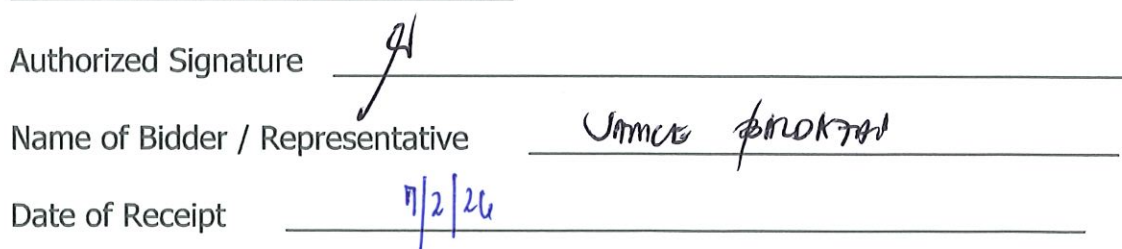 Authorized Signature
Name of Bidder / Representative
Date of Receipt 7/2/26